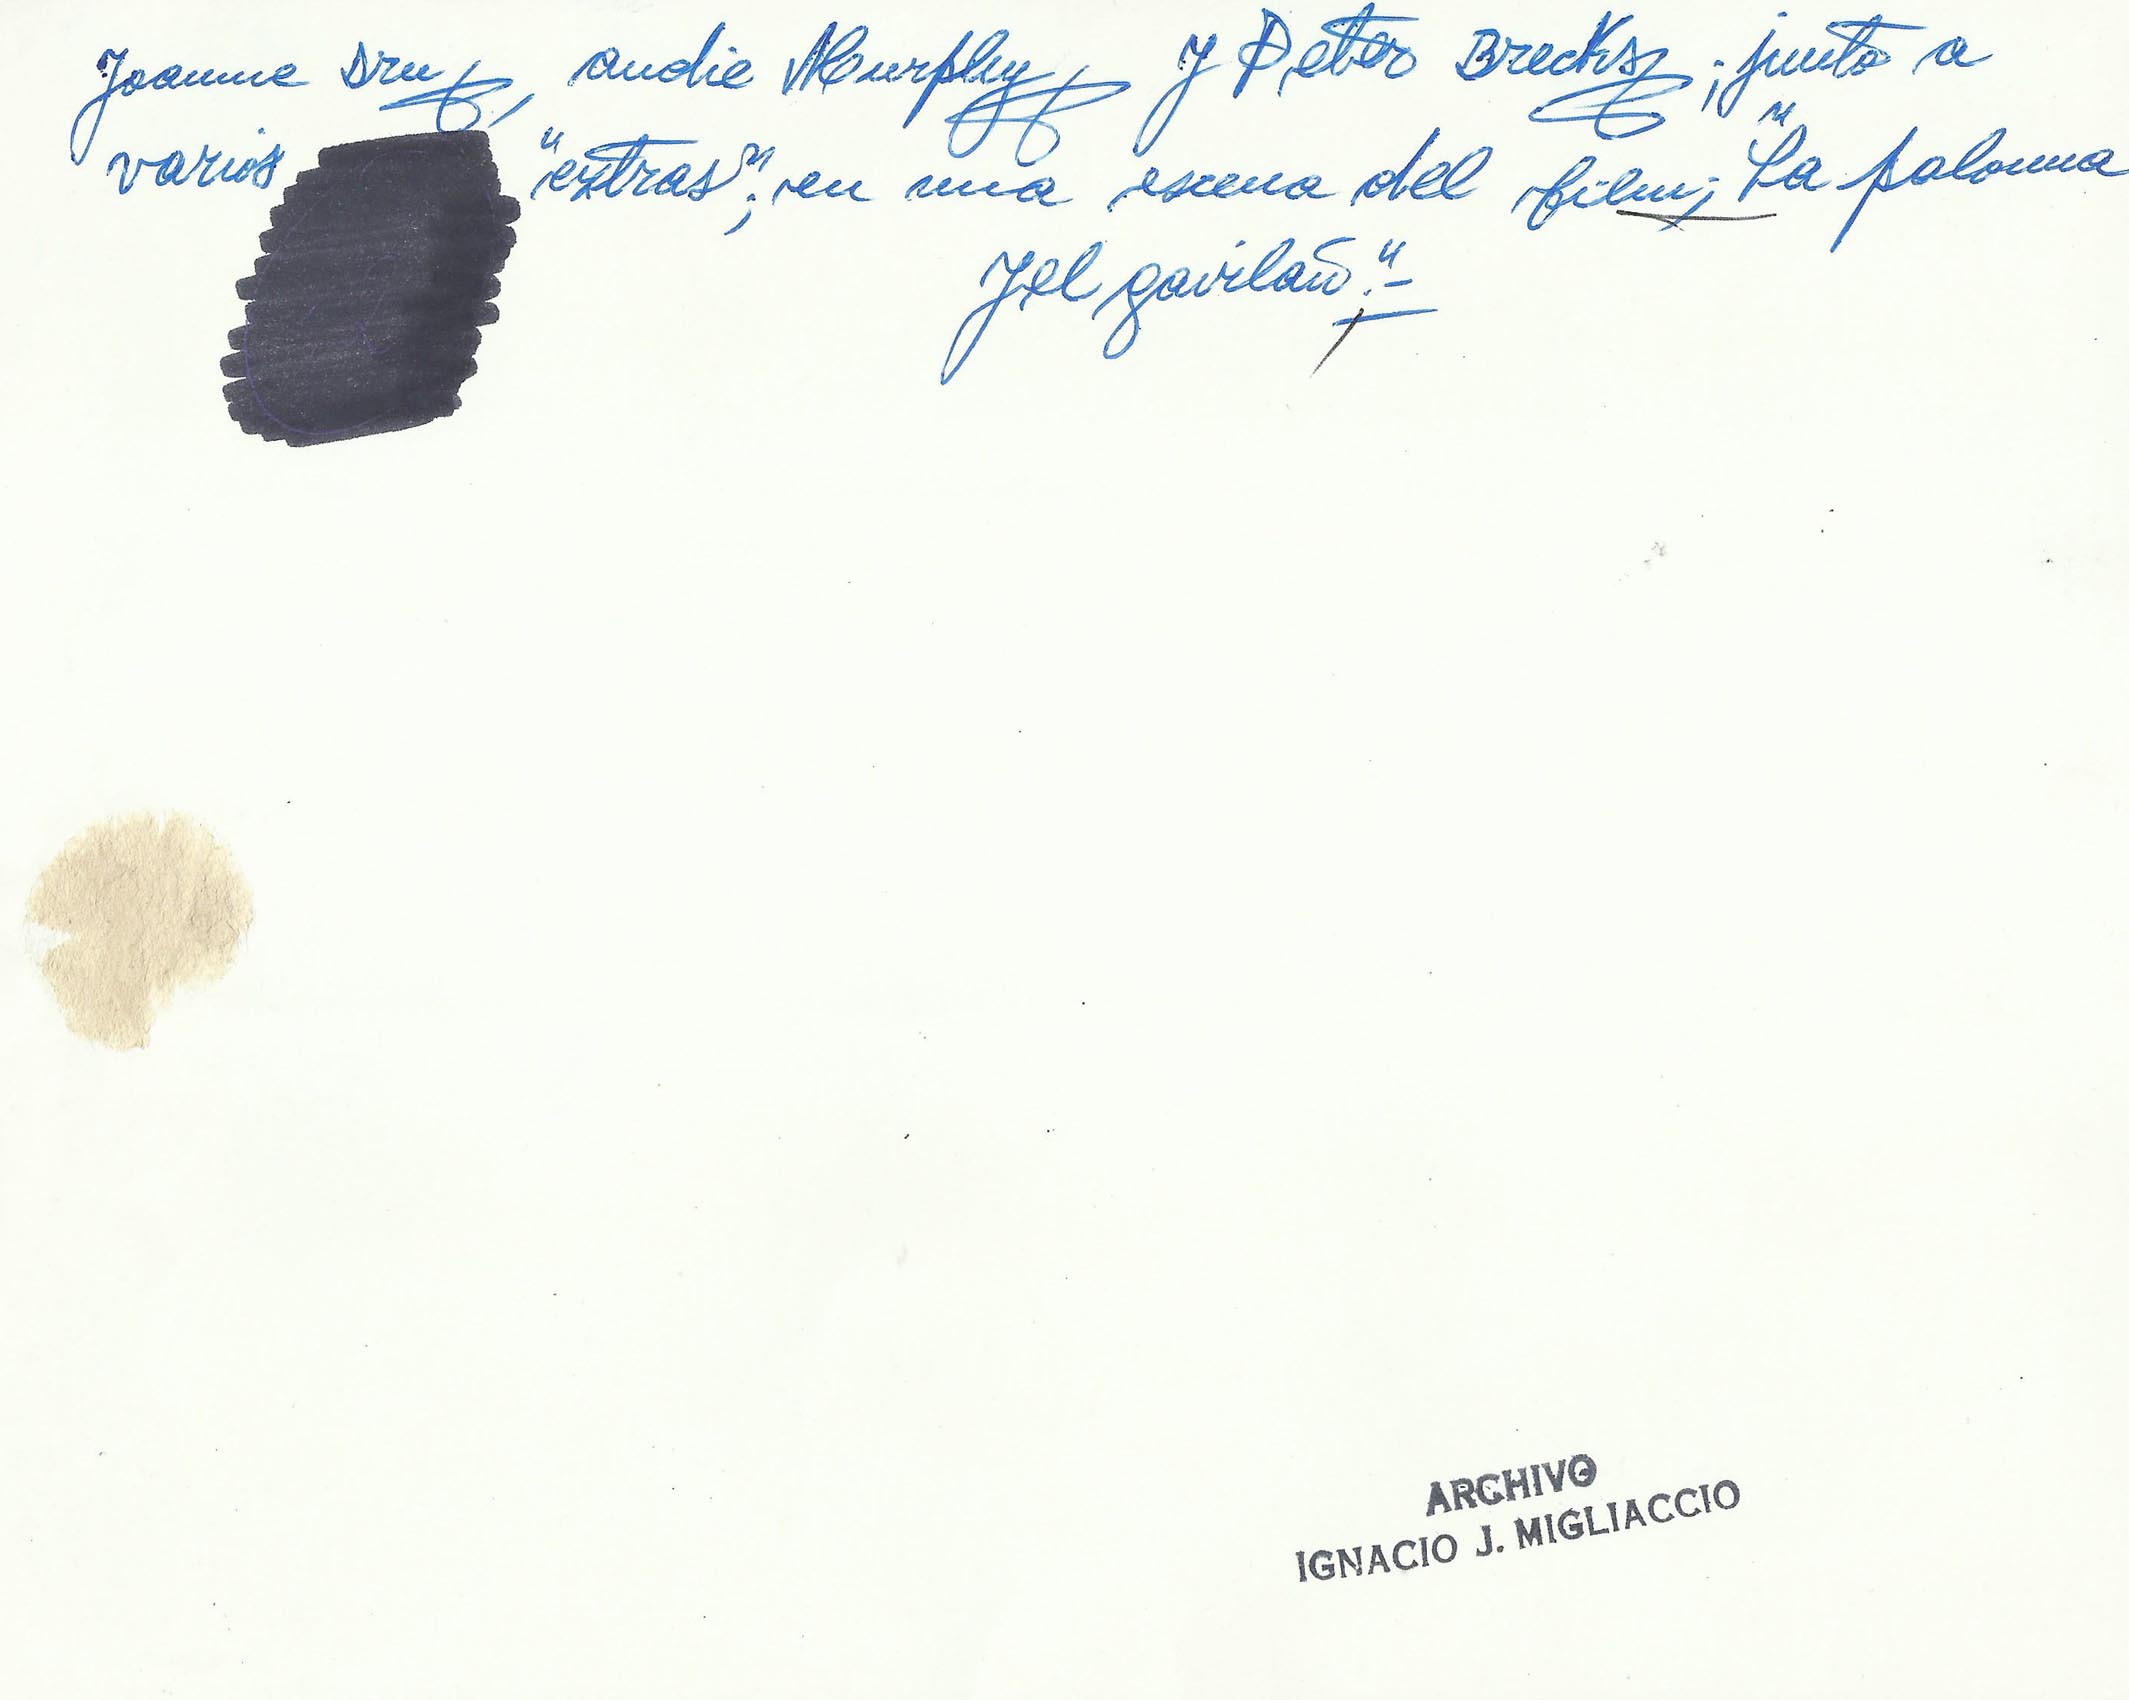 Joanne Dru, audie Murphy y Peter Brecks; junto a
varios "extras"; en una escena del film; "La paloma
y el gavilan".-
ARCHIVO
IGNACIO J. MIGLIACCIO